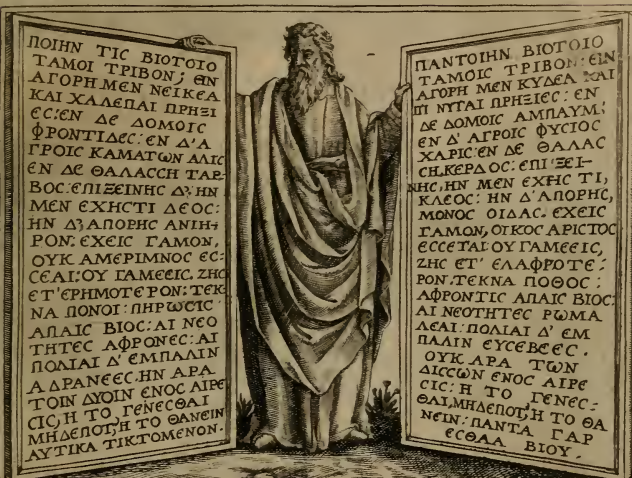 ΠΟΙΗΝ ΤΙϹ ΒΙΟΤΟΙΟ
ΤΑΜΟΙ ΤΡΙΒΟΝ; ΕΝ
ΑΓΟΡΗ ΜΕΝ ΝΕΙΚΕΑ
ΚΑΙ ΧΑΛΕΠΑΙ ΠΡΗΞΙ
ΕϹ: ΕΝ ΔΕ ΔΟΜΟΙϹ
ΦΡΟΝΤΙΔΕϹ: ΕΝ Δ'Α
ΓΡΟΙϹ ΚΑΜΑΤΩΝ ΑΛΙϹ
ΕΝ ΔΕ ΘΑΛΑϹϹΗ ΤΑΡ
ΒΟϹ: ΕΠΙ ΞΕΙΝΗϹ Δ', ΗΝ
ΜΕΝ ΕΧΗϹ ΤΙ ΔΕΟϹ:
ΗΝ Δ' ΑΠΟΡΗϹ ΑΝΙΗ-
ΡΟΝ: ΕΧΕΙϹ ΓΑΜΟΝ,
ΟΥΚ ΑΜΕΡΙΜΝΟϹ ΕϹ-
ϹΕΑΙ: ΟΥ ΓΑΜΕΕΙϹ, ΖΗϹ
ΕΤ' ΕΡΗΜΟΤΕΡΟΝ: ΤΕΚ-
ΝΑ ΠΟΝΟΙ: ΠΗΡΩϹΙϹ
ΑΠΑΙϹ ΒΙΟϹ: ΑΙ ΝΕΟ
ΤΗΤΕϹ ΑΦΡΟΝΕϹ: ΑΙ
ΠΟΛΙΑΙ Δ' ΕΜΠΑΛΙΝ
ΑΔΡΑΝΕΕϹ. ΗΝ ΑΡΑ
ΤΟΙΝ ΔΥΟΙΝ ΕΝΟϹ ΑΙΡΕ
ϹΙϹ, Η ΤΟ ΓΕΝΕϹΘΑΙ
ΜΗΔΕΠΟΤ', Η ΤΟ ΘΑΝΕΙΝ
ΑΥΤΙΚΑ ΤΙΚΤΟΜΕΝΟΝ.
ΠΑΝΤΟΙΗΝ ΒΙΟΤΟΙΟ
ΤΑΜΟΙϹ ΤΡΙΒΟΝ: ΕΙΝ
ΑΓΟΡΗ ΜΕΝ ΚΥΔΕΑ ΚΑΙ
ΠΙΝΥΤΑΙ ΠΡΗΞΙΕϹ: ΕΝ
ΔΕ ΔΟΜΟΙϹ ΑΜΠΑΥΜ,
ΕΝ Δ' ΑΓΡΟΙϹ ΦΥϹΙΟϹ
ΧΑΡΙϹ: ΕΝ ΔΕ ΘΑΛΑϹ
ϹΗ, ΚΕΡΔΟϹ: ΕΠΙ ΞΕΙ-
ΝΗϹ, ΗΝ ΜΕΝ ΕΧΗϹ ΤΙ,
ΚΛΕΟϹ: ΗΝ Δ' ΑΠΟΡΗϹ,
ΜΟΝΟϹ ΟΙΔΑϹ. ΕΧΕΙϹ
ΓΑΜΟΝ, ΟΙΚΟϹ ΑΡΙϹΤΟϹ
ΕϹϹΕΤΑΙ: ΟΥ ΓΑΜΕΕΙϹ,
ΖΗϹ ΕΤ' ΕΛΑΦΡΟΤΕ:
ΡΟΝ. ΤΕΚΝΑ ΠΟΘΟϹ:
ΑΦΡΟΝΤΙϹ ΑΠΑΙϹ ΒΙΟϹ:
ΑΙ ΝΕΟΤΗΤΕϹ ΡΩΜΑ
ΛΕΑΙ: ΠΟΛΙΑΙ Δ' ΕΜ
ΠΑΛΙΝ ΕΥϹΕΒΕΕϹ.
ΟΥΚ ΑΡΑ ΤΩΝ
ΔΙϹϹΩΝ ΕΝΟϹ ΑΙΡΕ
ϹΙϹ: Η ΤΟ ΓΕΝΕϹ:
ΘΑΙ, ΜΗΔΕΠΟΤ', Η ΤΟ ΘΑ
ΝΕΙΝ: ΠΑΝΤΑ ΓΑΡ
ΕϹΘΛΑ ΒΙΟΥ.